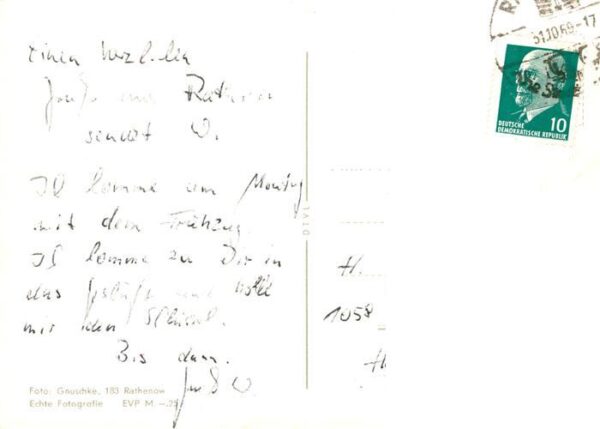 Einen herzlichen
Gruß aus Rathenow
sendet W.
Ich komme am Montag
mit dem Frühzug.
Ich komme zu Dir in
das Geschäft und hole
mir den Schlüssel.
Bis dann.
Gruß W.
Foto: Gnuschke, 183 Rathenow
Echte Fotografie EVP M –.25
DTVL
H.
1058
31.10.69-17
10
DEUTSCHE
DEMOKRATISCHE REPUBLIK